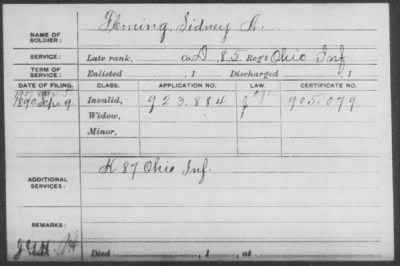 NAME OF SOLDIER: Fleming, Sidney H.
SERVICE: Late rank, Co. D, 85 Reg't Ohio Inf
TERM OF SERVICE: Enlisted , 1 Discharged , 1
DATE OF FILING. CLASS. APPLICATION NO. LAW. CERTIFICATE NO.
1890 Sep. 9. Invalid, 923.884 905.079
Widow,
Minor,
ADDITIONAL SERVICES: K 87 Ohio Inf.
REMARKS:
Died , 1 , at